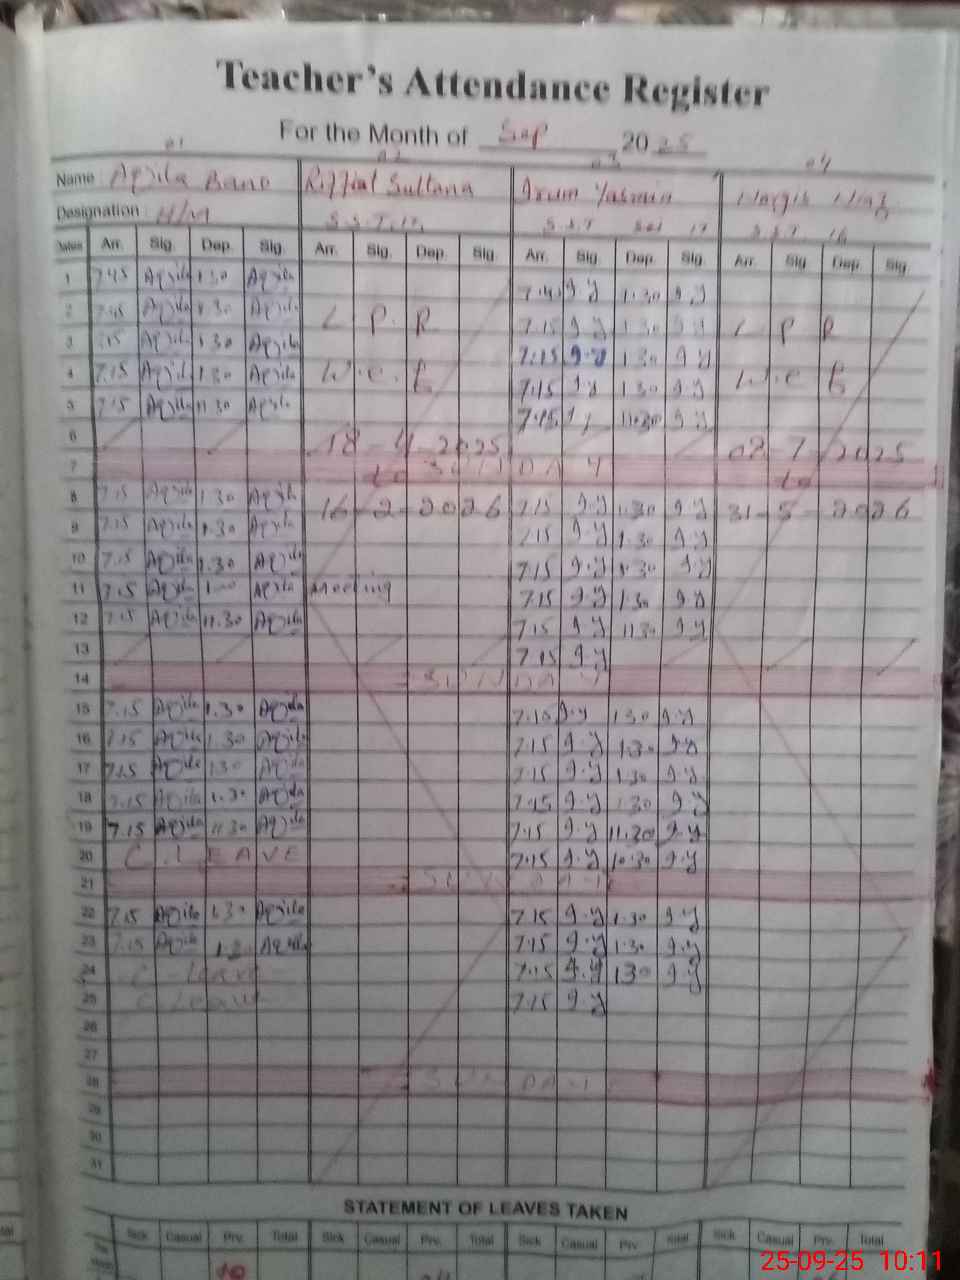 Teacher's Attendance Register
For the Month of Sep 2025
01 02 03 04
Name Aqila Bano Riffat Sultana Irum Yasmin Nargis Niaz
Designation H/M S.S.T, 17 S.S.T Sci 17 S.S.T. 16
Dates Arr. Sig. Dep. Sig. Arr. Sig. Dep. Sig. Arr. Sig. Dep. Sig. Arr. Sig. Dep. Sig.
1 7.45 Aqila 1.30 Aqila 7.45 I.Y 1.30 I.Y
2 7.15 Aqila 1.30 Aqila L P R 7.15 I.Y 1.30 I.Y L P R
3 7.15 Aqila 1.30 Aqila 7.15 I.Y 1.30 I.Y
4 7.15 Aqila 1.30 Aqila W.e.f 7.15 I.Y 1.30 I.Y W.e.f
5 7.15 Aqila 11.30 Aqila 7.15 I.Y 11.30 I.Y
6 18-4-2025 08-7-2025
7 to SUNDAY to
8 7.15 Aqila 1.30 Aqila 16-2-2026 7.15 I.Y 1.30 I.Y 31-5-2026
9 7.15 Aqila 1.30 Aqila 7.15 I.Y 1.30 I.Y
10 7.15 Aqila 1.30 Aqila 7.15 I.Y 1.30 I.Y
11 7.15 Aqila Aqila Meeting 7.15 I.Y 1.30 I.Y
12 7.15 Aqila 11.30 Aqila 7.15 I.Y 11.30 I.Y
13 7.15 I.Y
14 SUNDAY
15 7.15 Aqila 1.30 Aqila 7.15 I.Y 1.30 I.Y
16 7.15 Aqila 1.30 Aqila 7.15 I.Y 1.30 I.Y
17 7.15 Aqila 1.30 Aqila 7.15 I.Y 1.30 I.Y
18 7.15 Aqila 1.30 Aqila 7.15 I.Y 1.30 I.Y
19 7.15 Aqila 11.30 Aqila 7.15 I.Y 11.30 I.Y
20 C. LEAVE 7.15 I.Y 10.30 I.Y
21 SUNDAY
22 7.15 Aqila 1.30 Aqila 7.15 I.Y 1.30 I.Y
23 7.15 Aqila 1.3 Aqila 7.15 I.Y 1.30 I.Y
24 C Leave 7.15 I.Y 1.30 I.Y
25 C Leave 7.15 I.Y
26
27
28 SUNDAY
29
30
31
STATEMENT OF LEAVES TAKEN
Sick Casual Prv. Total Sick Casual Prv. Total Sick Casual Prv. Total Sick Casual Prv. Total
10
25-09-25 10:11